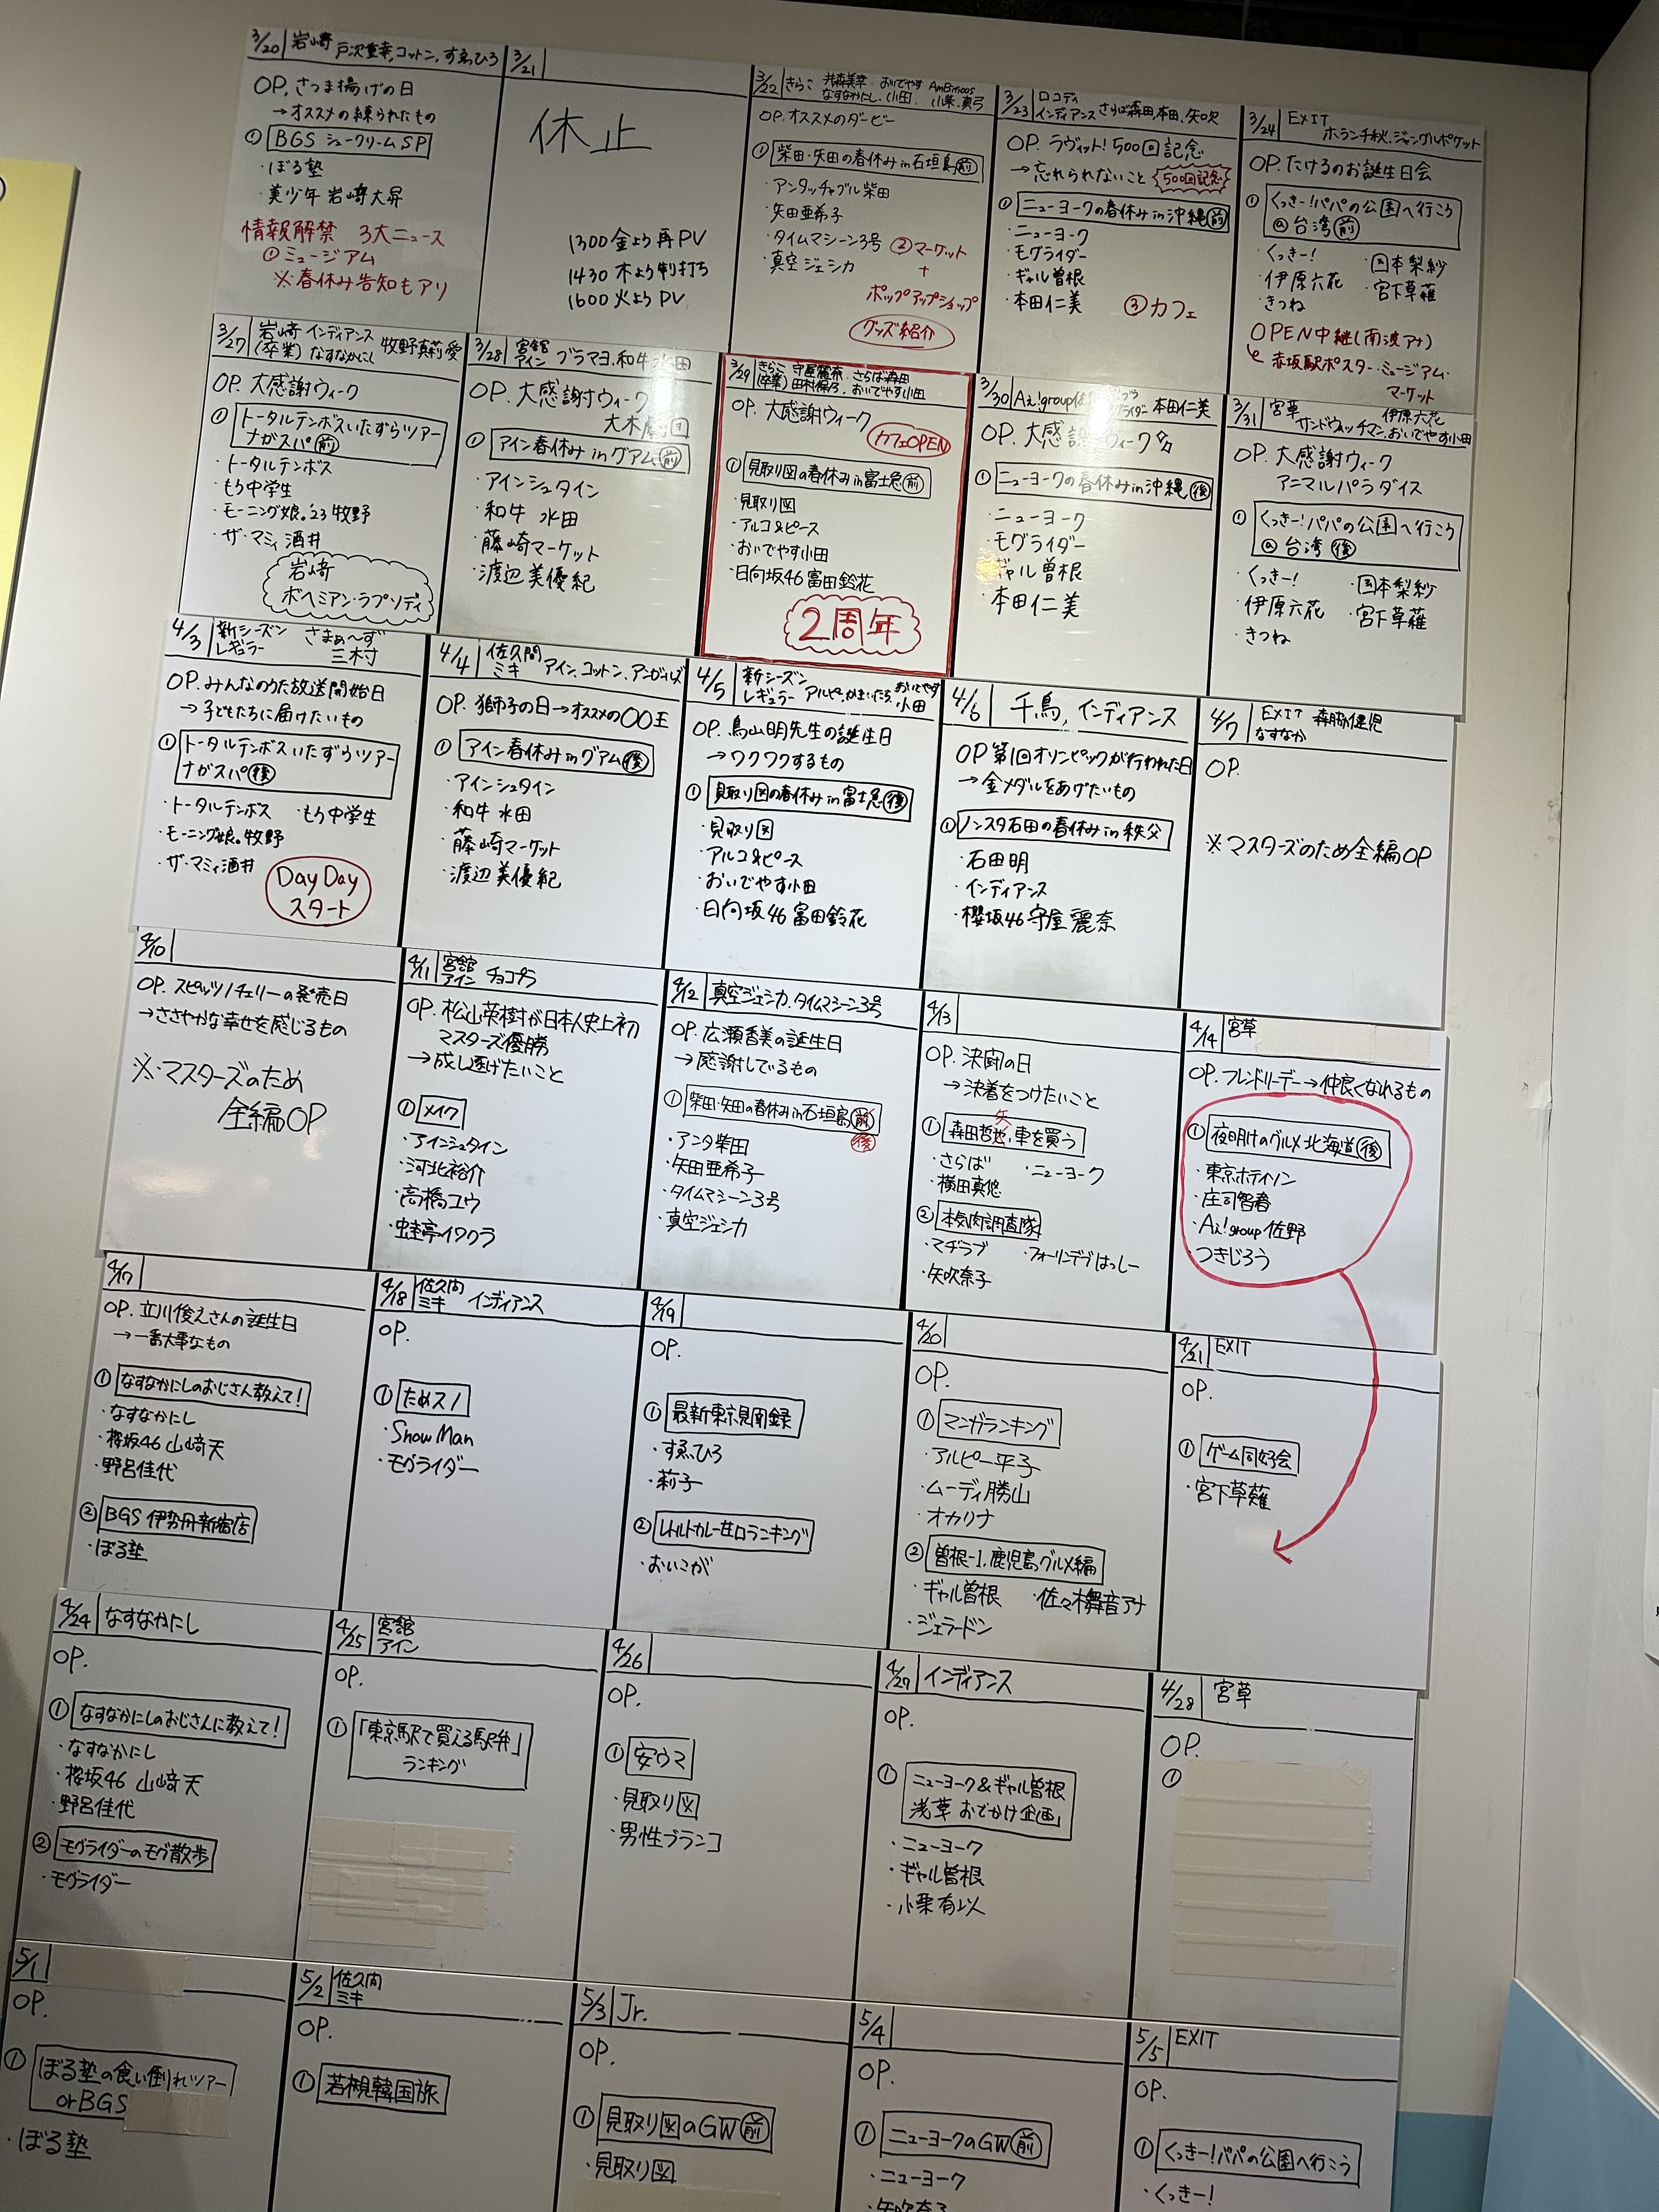 3/20 岩﨑 戸沢重幸,コットン,すゑひろ
OP.さつま揚げの日
→オススメの練られたもの
① BGS シュークリームSP
・ぼる塾
・美少年 岩﨑大昇
情報解禁 3大ニュース
①ミュージアム
※春休み告知もアリ
3/21
休止
1300 金より再PV
1430 木より撃打ち
1600 火よりPV
3/22 きらこ 井森美幸 おいでやす AmBitious
なすなかにし.小田. 小柴.真弓
OP.オススメのダービー
① 柴田・矢田の春休みin石垣島 前
・アンタッチャブル柴田
・矢田亜希子
・タイムマシーン3号
・真空ジェシカ
②マーケット
+
ポップアップショップ
グッズ紹介
3/23 ロコディ
インディアンス さらば森田,本田.矢吹
OP. ラヴィット!500回記念
→忘れられないこと
500回記念
① ニューヨークの春休みin沖縄 前
・ニューヨーク
・モグライダー
・ギャル曽根
・本田仁美
③カフェ
3/24 EXIT
ホランチ秋,ジャングルポケット
OP.たけるのお誕生日会
① くっきー!パパの公園へ行こう
@台湾 前
・くっきー!
・国本梨紗
・伊原六花
・宮下草薙
・きつね
OPEN中継(南波アナ)
赤坂駅ポスター・ミュージアム・
マーケット
3/27 岩﨑 インディアンス 牧野真莉愛
(卒業) なすなかにし
OP.大感謝ウィーク
① トータルテンボスいたずらツアー
ナガスパ 前
・トータルテンボス
・もう中学生
・モーニング娘。'23 牧野
・ザ・マミィ酒井
岩﨑
ボヘミアン・ラプソディ
3/28 宮舘 ブラマヨ.和牛 水田
アイン
OP.大感謝ウィーク
① アイン春休みinグアム 前
・アインシュタイン
・和牛 水田
・藤崎マーケット
・渡辺美優紀
3/29 きらこ 守屋麗奈.さらば森田
(卒業) 田村保乃.おいでやす小田
OP.大感謝ウィーク
カフェOPEN
① 見取り図の春休みin富士急 前
・見取り図
・アルコ&ピース
・おいでやす小田
・日向坂46 富田鈴花
2周年
3/30 Aぇ!group 本田仁美
OP.大感謝ウィーク
① ニューヨークの春休みin沖縄 後
・ニューヨーク
・モグライダー
・ギャル曽根
・本田仁美
3/31 宮草 伊原六花
サンドウィッチマン,おいでやす小田
OP.大感謝ウィーク
アニマルパラダイス
① くっきー!パパの公園へ行こう
@台湾 後
・くっきー!
・国本梨紗
・伊原六花
・宮下草薙
・きつね
4/3 新シーズン さまぁ~ず
レギュラー 三村
OP.みんなのうた放送開始日
→子どもたちに届けたいもの
① トータルテンボスいたずらツアー
ナガスパ 後
・トータルテンボス ・もう中学生
・モーニング娘。牧野
・ザ・マミィ酒井
DayDay
スタート
4/4 佐久間
ミキ アイン,コットン,アンガールズ
OP.獅子の日→オススメの〇〇王
① アイン春休みinグアム 後
・アインシュタイン
・和牛 水田
・藤崎マーケット
・渡辺美優紀
4/5 新シーズン おいでやす
レギュラー アルピー,かまいたち,小田
OP.鳥山明先生の誕生日
→ワクワクするもの
① 見取り図の春休みin富士急 後
・見取り図
・アルコ&ピース
・おいでやす小田
・日向坂46 富田鈴花
4/6 千鳥,インディアンス
OP 第1回オリンピックが行われた日
→金メダルをあげたいもの
① ノンスタ石田の春休みin秩父
・石田明
・インディアンス
・櫻坂46 守屋麗奈
4/7 EXIT 森脇健児
なすなか
OP.
※マスターズのため全編OP
4/10
OP.スピッツ/チェリーの発売日
→ささやかな幸せを感じるもの
※マスターズのため
全編OP
4/11 宮舘
アイン チョコプラ
OP.松山英樹が日本人史上初
マスターズ優勝
→成し遂げたいこと
① メイク
・アインシュタイン
・河北裕介
・高橋ユウ
・蛙亭イワクラ
4/12 真空ジェシカ.タイムマシーン3号
OP.広瀬香美の誕生日
→感謝しているもの
① 柴田・矢田の春休みin石垣島 前
後
・アンタ柴田
・矢田亜希子
・タイムマシーン3号
・真空ジェシカ
4/13
OP.決闘の日
→決着をつけたいこと
矢
① 森田哲也,車を買う
・さらば ・ニューヨーク
・横田真悠
② 本気肉調査隊
・マヂラブ ・フォーリンデブはっしー
・矢吹奈子
4/14 宮草
OP.フレンドリーデー→仲良くなれるもの
① 夜明けのグルメ北海道 後
・東京ホテイソン
・庄司智春
・Aぇ!group佐野
・つきじろう
4/17
OP.立川俊之さんの誕生日
→一番大事なもの
① なすなかにしのおじさん教えて!
・なすなかにし
・櫻坂46 山﨑天
・野呂佳代
② BGS 伊勢丹新宿店
・ぼる塾
4/18 佐久間
ミキ インディアンス
OP.
① ためスノ
・Snow Man
・モグライダー
4/19
OP.
① 最新東京見聞録
・すゑひろ
・莉子
② レトルトカレー辛口ランキング
・おいこが
4/20
OP.
① マンガランキング
・アルピー平子
・ムーディ勝山
・オカリナ
② 曽根-1.鹿児島グルメ編
・ギャル曽根 ・佐々木舞音アナ
・ジェラードン
4/21 EXIT
OP.
① ゲーム同好会
・宮下草薙
4/24 なすなかにし
OP.
① なすなかにしのおじさんに教えて!
・なすなかにし
・櫻坂46 山﨑天
・野呂佳代
② モグライダーのモグ散歩
・モグライダー
4/25 宮舘
アイン
OP.
① 「東京駅で買える駅弁」
ランキング
4/26
OP.
① 安ウマ
・見取り図
・男性ブランコ
4/27 インディアンス
OP.
① ニューヨーク&ギャル曽根
浅草おでかけ企画」
・ニューヨーク
・ギャル曽根
・小栗有以
4/28 宮草
OP.
①
5/1
OP.
① ぼる塾の食い倒れツアー
orBGS
・ぼる塾
5/2 佐久間
ミキ
OP.
① 若槻韓国旅
5/3 Jr.
OP.
① 見取り図のGW 前
・見取り図
5/4
OP.
① ニューヨークのGW 前
・ニューヨーク
・矢吹奈子
5/5 EXIT
OP.
① くっきー!パパの公園へ行こう
・くっきー!